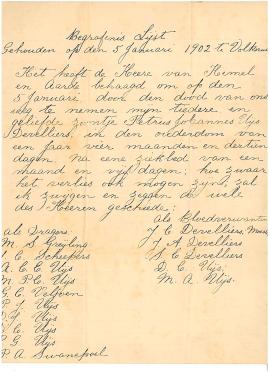 Begrafenis Lyst
Gehouden op den 5 Januari 1902 te Volksrus
Het heeft de Heere van Hemel
en Aarde behaagd om op den
5 Januari door den dood van ons
weg te nemen myn tedere en
geliefde zoontje Petrus Johannes Uys
Develliers, in den ouderdom van
een jaar vier maanden en dertien
dagen. Na eene ziekbed van een
maand en vyf dagen; hoe zwaar
het verlies ook mogen zyn, zal
ik zwygen en zeggen de wile
des Heeren geschiede;
als Bloedverwanten
als Dragers
J C Devilliers,
M S Greyling
J A Devilliers
C Scheepers
S C Devilliers
A. C. C. Uys
D. C. Uys,
M P C Uys
M. A. Uys.
G. C. Veljoen
P J Uys
J Uys
C Uys
P G Uys
P A Swanepoel